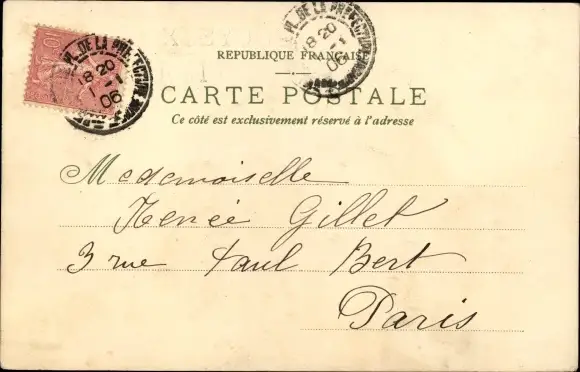 PL. DE LA PRÉFECTURE
18 20
1 -1
06
10
PL. DE LA PRÉFECTURE
18 20
1 -1
06
REPUBLIQUE FRANÇAISE
CARTE POSTALE
Ce côté est exclusivement réservé à l'adresse
Mademoiselle
Renée Gillet
3 rue Paul Bert
Paris